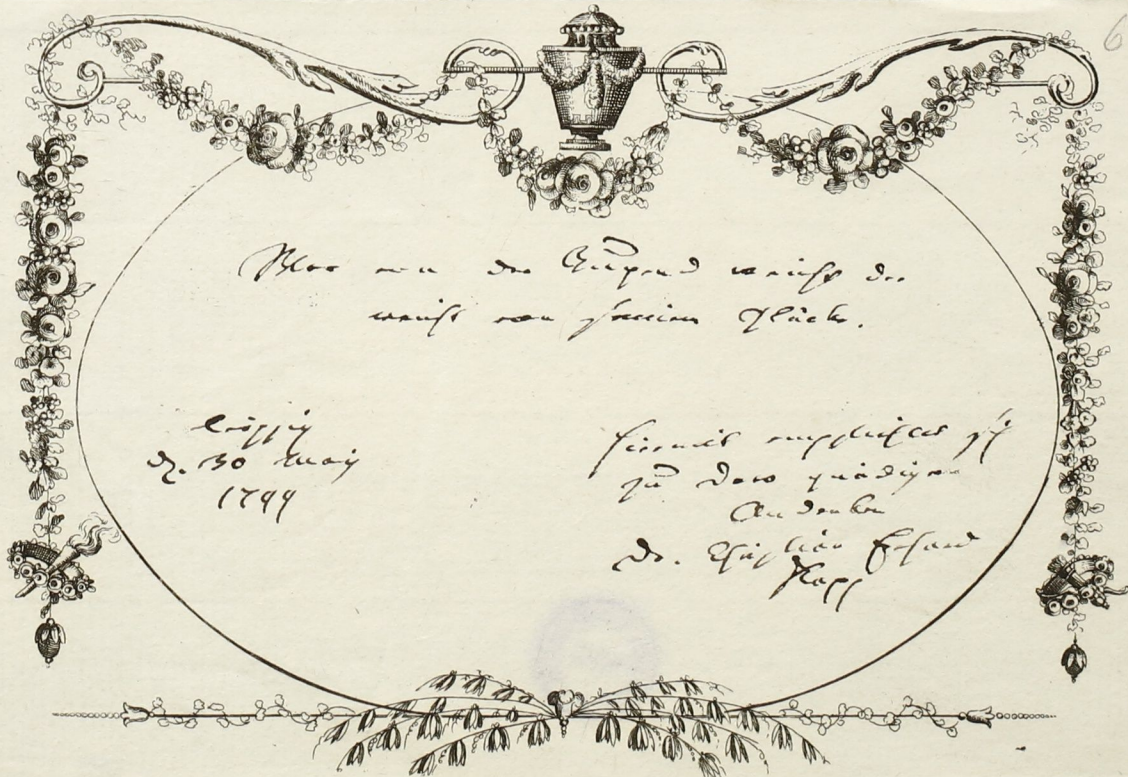 Wer von der Tugend weicht der
weicht von seinem Glücke.
Leipzig
d. 30 May
1799
Hiermit empfiehlet sich
zu Dero gnädigen
Andenken
Dr. Christian Erhard
Kapp
6